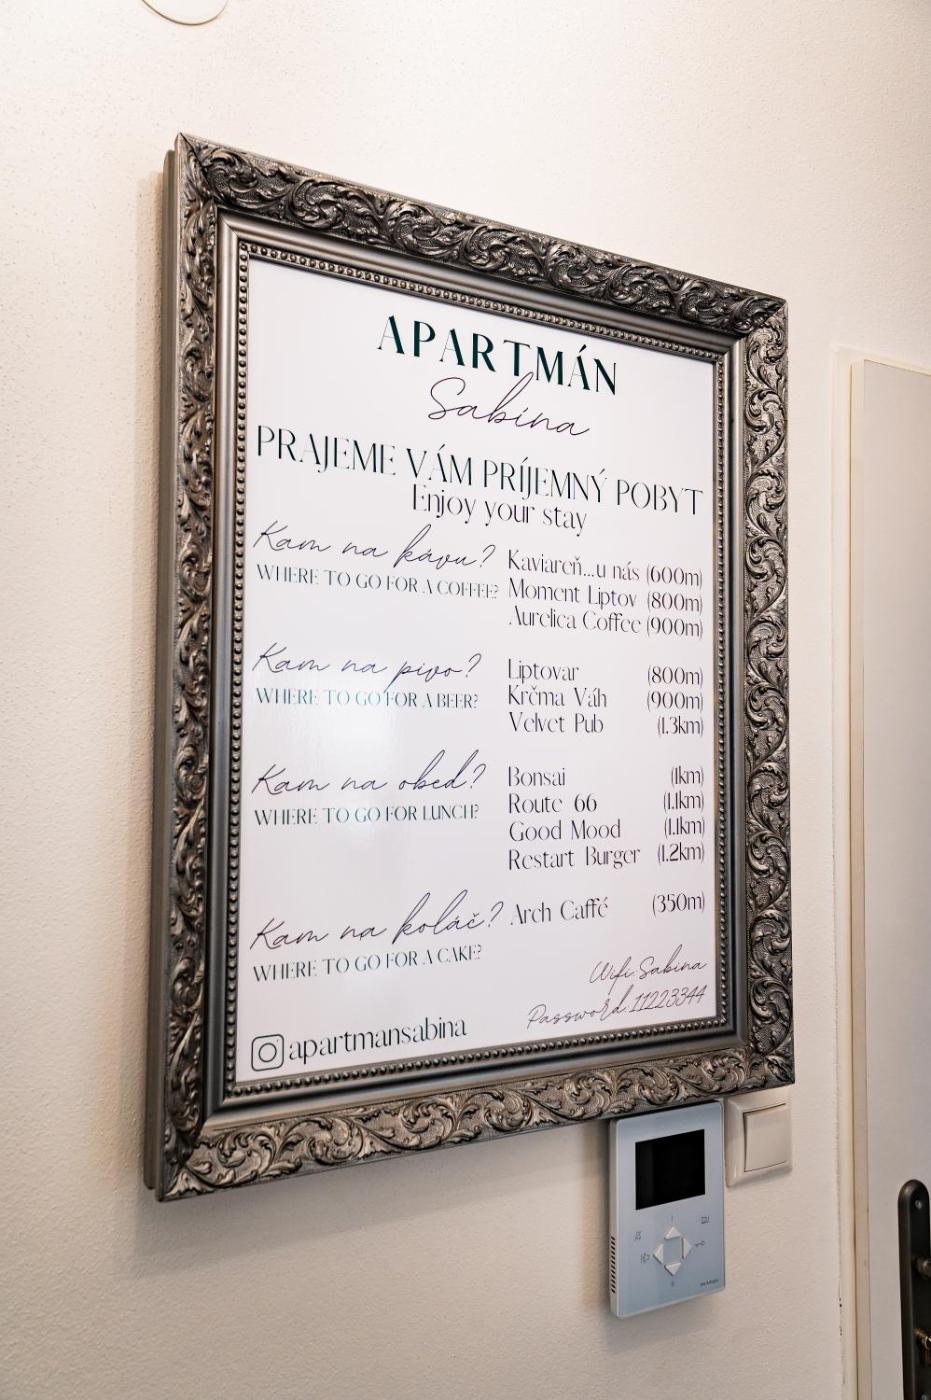 APARTMÁN
Sabina
PRAJEME VÁM PRÍJEMNÝ POBYT
Enjoy your stay
Kam na kávu?
WHERE TO GO FOR A COFFEE?
Kaviareň...u nás (600m)
Moment Liptov (800m)
Aurelica Coffee (900m)
Kam na pivo?
WHERE TO GO FOR A BEER?
Liptovar (800m)
Krčma Váh (900m)
Velvet Pub (1.3km)
Kam na obed?
WHERE TO GO FOR LUNCH?
Bonsai (1km)
Route 66 (1.1km)
Good Mood (1.1km)
Restart Burger (1.2km)
Kam na koláč?
WHERE TO GO FOR A CAKE?
Arch Caffé (350m)
Wifi: Sabina
Password: 11223344
apartmansabina